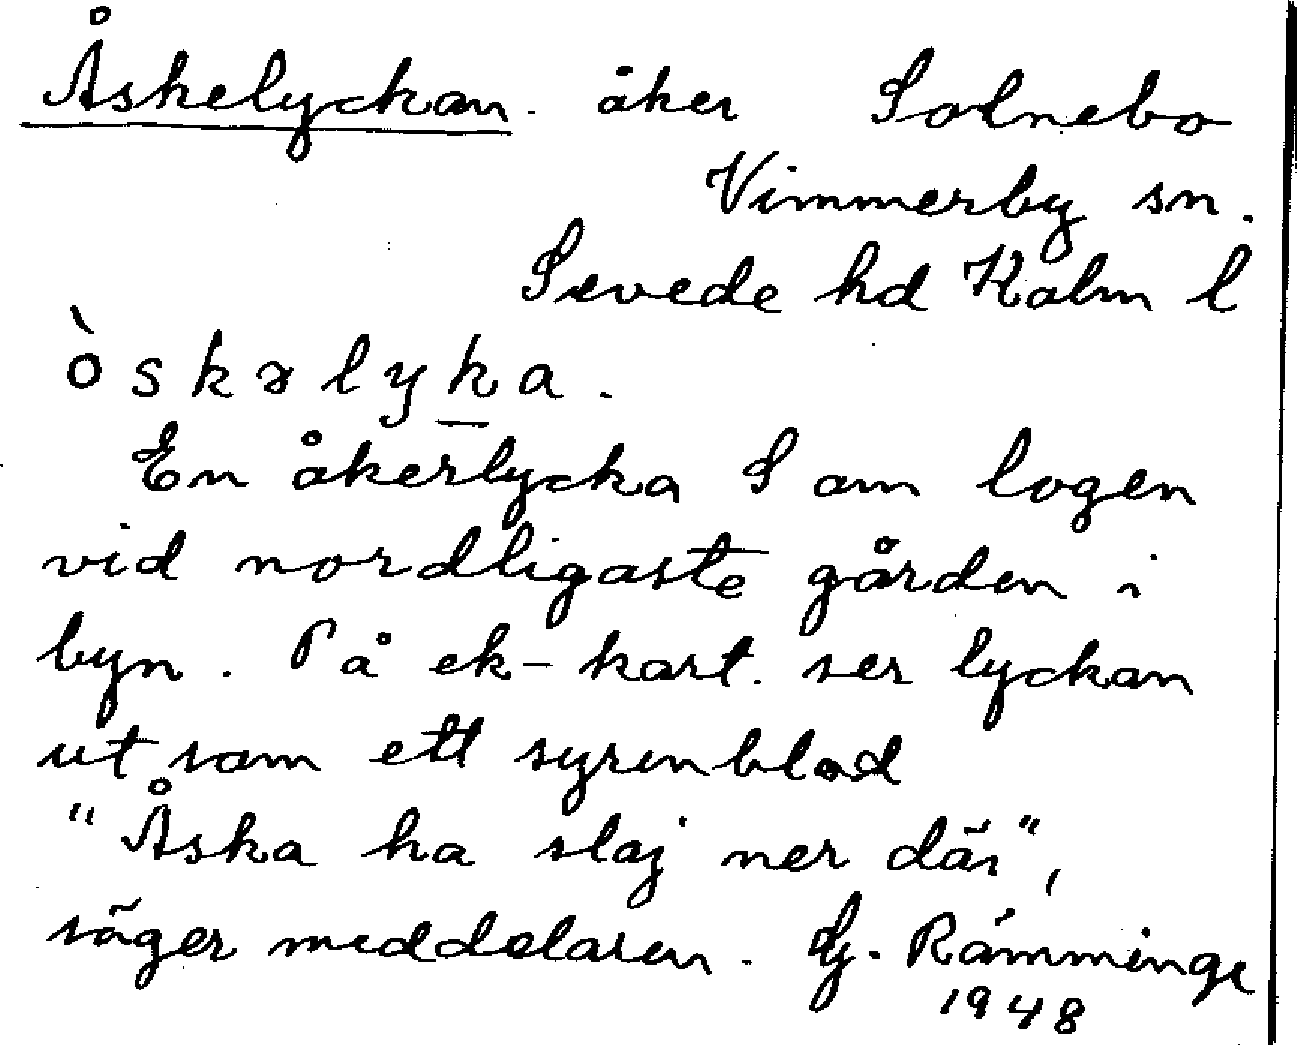 Åskelyckan. åker Solnebo
Vimmerby sn.
Sevede hd Kalm l
òskəlyka.
En åkerlycka S om logen
vid nordligaste gården i
byn. På ek-kart. ser lyckan
ut som ett syrenblad
"Åska ha slaj ner där",
säger meddelaren. G. Rämminge
1948